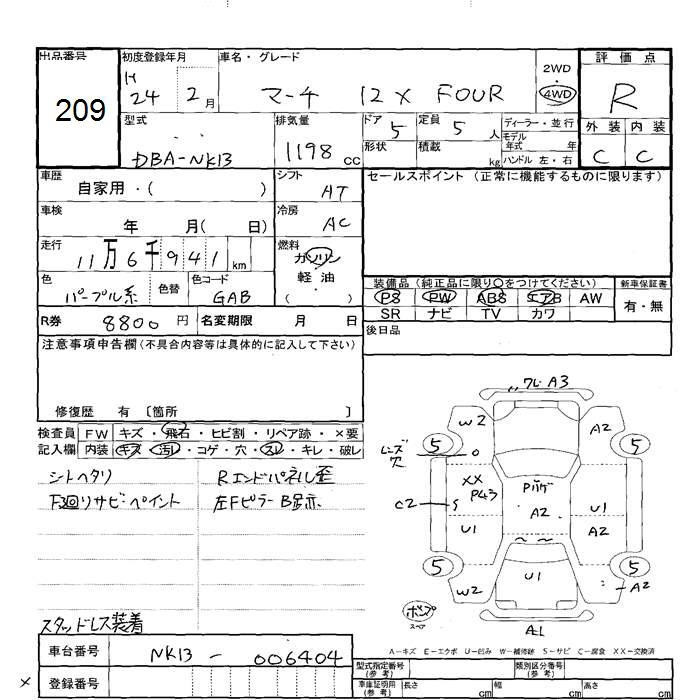 出品番号 初度登録年月 車名・グレード 2WD 評価点
209 H 24 2月 マーチ 12X FOUR 4WD R
型式 排気量 ドア 5 定員 5人 ディーラー・並行 外装 内装
DBA-NK13 1198cc 形状 積載 kg モデル年式 年 ハンドル 左・右 C C
車歴 自家用・( ) シフト AT セールスポイント (正常に機能するものに限ります)
車検 年 月( 日) 冷房 AC
走行 11万6千941km 燃料 ガソリン
軽油
( )
色 パープル系 色替 色コード GAB
装備品 (純正品に限り○をつけてください) 新車保証書
PS PW ABS エアB AW 有・無
SR ナビ TV カワ
R券 8800円 名変期限 月 日 後日品
注意事項申告欄 (不具合内容等は具体的に記入して下さい)
修復歴 有 〔箇所 〕
検査員 FW キズ・飛石・ヒビ割・リペア跡・×要
記入欄 内装 キズ・汚レ・コゲ・穴・スレ・キレ・破レ
シートヘタリ Rエンドパネル歪
下廻りサビペイント 左FピラーB跡
スタッドレス装着
ワレ A3
W2 A2
5 5
レンズ穴
XX P43 Pバケ
C2 S A2 U1
U1 A2
5 5
W2 U1 A2
ポンプ
A1
A-キズ E-エクボ U-凹み W-補修跡 S-サビ C-腐食 XX-交換済
車台番号 NK13-006404
型式指定番号 (参考) 類別区分番号 (参考)
× 登録番号
車庫証明用 (参考) 長さ cm 幅 cm 高さ cm